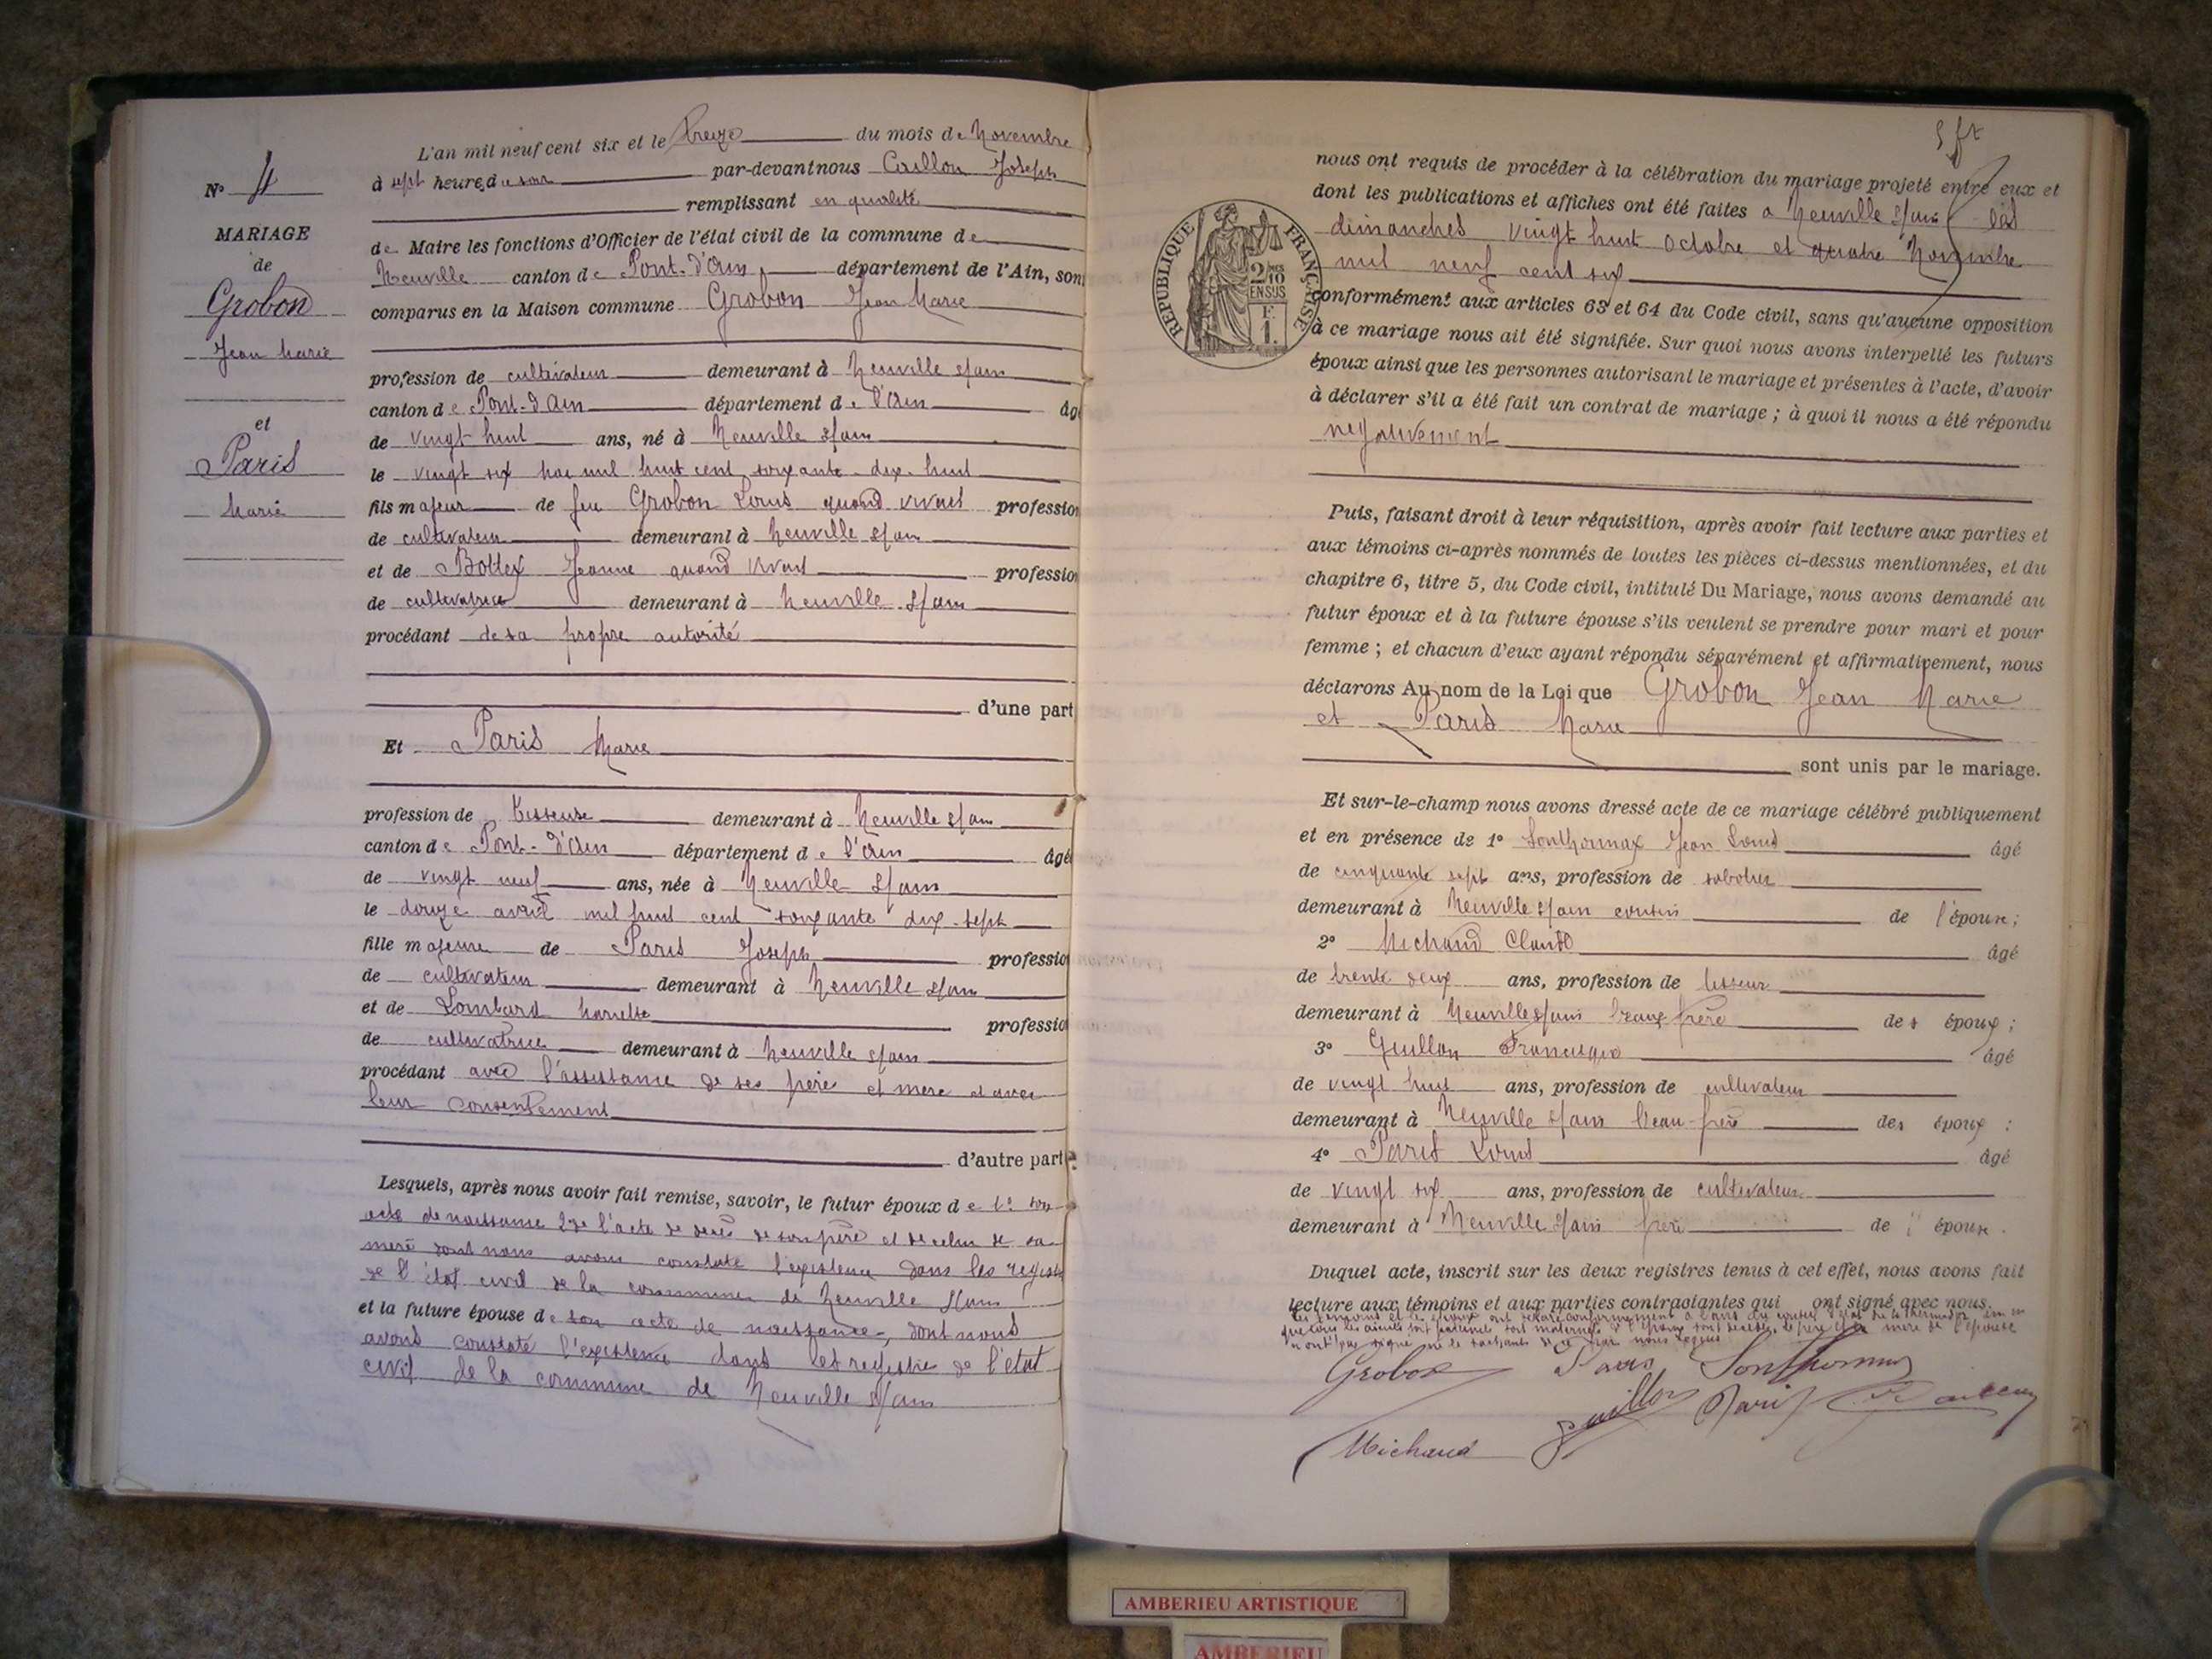 N° 4
MARIAGE
de
Grobon
Jean Marie
et
Paris
Marie
L'an mil neuf cent six et le treize du mois de Novembre
à sept heures du soir par-devant nous Caillon Joseph
remplissant en qualité
de Maire les fonctions d'Officier de l'état civil de la commune de
Neuville canton de Pont-d'Ain département de l'Ain, son
comparus en la Maison commune Grobon Jean Marie
profession de cultivateur demeurant à Neuville s/ain
canton de Pont-d'Ain département de l'Ain âgé
de vingt huit ans, né à Neuville s/ain
le vingt six mai mil huit cent soixante-dix-huit
fils majeur de feu Grobon Louis quand vivait profession
de cultivateur demeurant à Neuville s/ain
et de Bottex Jeanne quand vivait profession
de cultivatrice demeurant à Neuville s/ain
procédant de sa propre autorité
d'une part
Et Paris Marie
profession de tisseuse demeurant à Neuville s/ain
canton de Pont-d'Ain département de l'Ain âgé
de vingt neuf ans, née à Neuville s/ain
le douze avril mil huit cent soixante dix-sept
fille majeure de Paris Joseph profession
de cultivateur demeurant à Neuville s/ain
et de Lombard Mariette profession
de cultivatrice demeurant à Neuville s/ain
procédant avec l'assistance de ses père et mère et avec
leur consentement
d'autre part
Lesquels, après nous avoir fait remise, savoir, le futur époux de 1° son
acte de naissance 2° de l'acte de décès de son père et de celui de sa
mère dont nous avons constaté l'existence dans les registres
de l'état civil de la commune de Neuville s/ain
et la future épouse de son acte de naissance, dont nous
avons constaté l'existence dans les registre de l'état
civil de la commune de Neuville s/ain
nous ont requis de procéder à la célébration du mariage projeté entre eux et
dont les publications et affiches ont été faites a Neuville s/ain les
dimanches vingt huit Octobre et quatre Novembre
mil neuf cent six
RÉPUBLIQUE FRANÇAISE
2/10 EN SUS
F. 1.
conformément aux articles 63 et 64 du Code civil, sans qu'aucune opposition
à ce mariage nous ait été signifiée. Sur quoi nous avons interpellé les futurs
époux ainsi que les personnes autorisant le mariage et présentes à l'acte, d'avoir
à déclarer s'il a été fait un contrat de mariage ; à quoi il nous a été répondu
négativement
Puis, faisant droit à leur réquisition, après avoir fait lecture aux parties et
aux témoins ci-après nommés de toutes les pièces ci-dessus mentionnées, et du
chapitre 6, titre 5, du Code civil, intitulé Du Mariage, nous avons demandé au
futur époux et à la future épouse s'ils veulent se prendre pour mari et pour
femme ; et chacun d'eux ayant répondu séparément et affirmativement, nous
déclarons Au nom de la Loi que Grobon Jean Marie
et Paris Marie
sont unis par le mariage.
Et sur-le-champ nous avons dressé acte de ce mariage célébré publiquement
et en présence de 1° Jean Louis âgé
de cinquante sept ans, profession de sabotier
demeurant à Neuville s/ain cousin de l'épouse;
2° Michaud Claude âgé
de trente deux ans, profession de tisseur
demeurant à Neuville s/ain beau frère des époux ;
3° Guillon Francisque âgé
de vingt huit ans, profession de cultivateur
demeurant à Neuville s/ain beau-frère des époux ;
4° Paris Louis âgé
de vingt six ans, profession de cultivateur
demeurant à Neuville s/ain frère de l'épouse.
Duquel acte, inscrit sur les deux registres tenus à cet effet, nous avons fait
lecture aux témoins et aux parties contractantes qui ont signé avec nous.
Grobon Paris
Guillon Paris
Michaud
AMBERIEU ARTISTIQUE
AMBERIEU